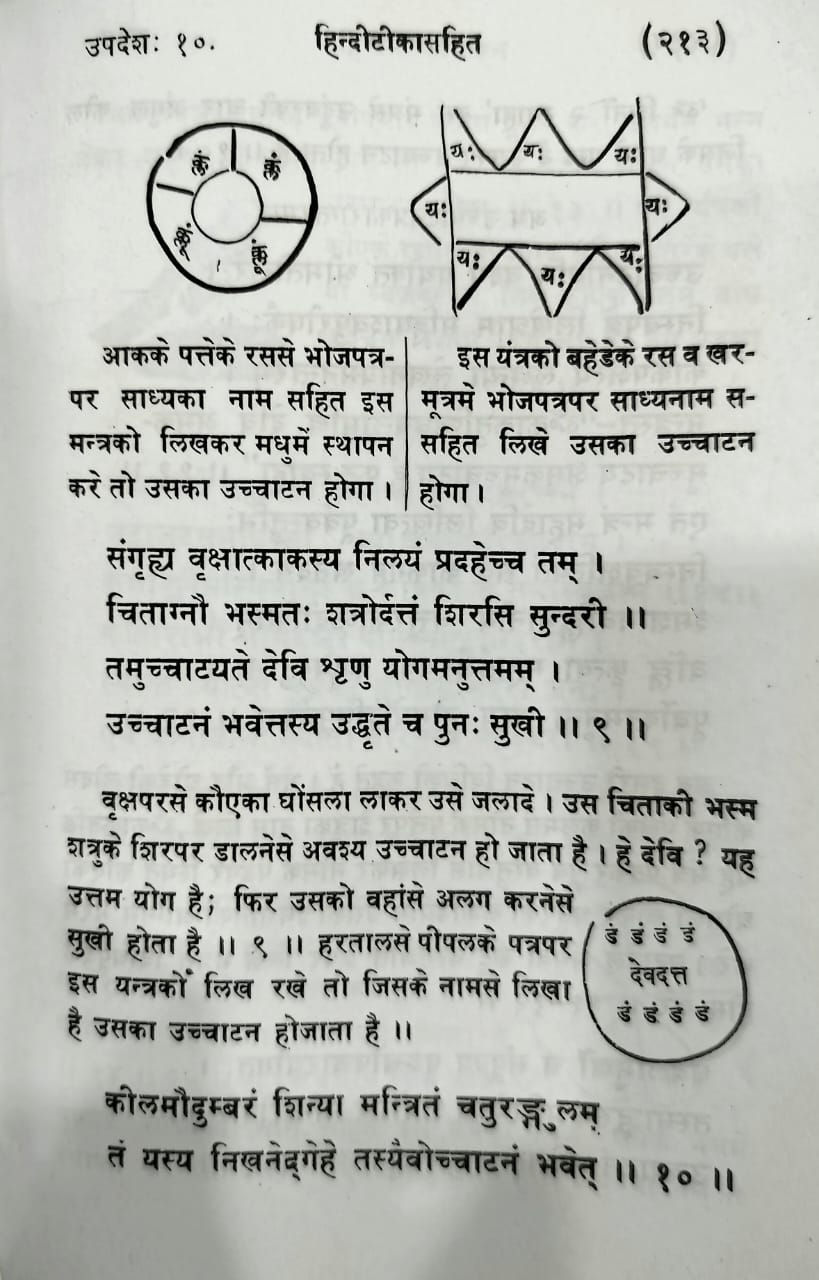 उपदेशः १०.
हिन्दीटीकासहित
(२१३)
यः यः यः
यः यः
यः यः यः
आकके पत्तेके रससे भोजपत्र-
पर साध्यका नाम सहित इस
मन्त्रको लिखकर मधुमें स्थापन
करे तो उसका उच्चाटन होगा ।
इस यंत्रको बहेडेके रस व खर-
मूत्रमे भोजपत्रपर साध्यनाम स-
सहित लिखे उसका उच्चाटन
होगा ।
संगृह्य वृक्षात्काकस्य निलयं प्रदहेच्च तम् ।
चिताग्नौ भस्मतः शत्रोर्दत्तं शिरसि सुन्दरी ।।
तमुच्चाटयते देवि शृणु योगमनुत्तमम् ।
उच्चाटनं भवेत्तस्य उद्धृते च पुनः सुखी ।। ९ ।।
वृक्षपरसे कौएका घोंसला लाकर उसे जलादे । उस चिताकी भस्म
शत्रुके शिरपर डालनेसे अवश्य उच्चाटन हो जाता है । हे देवि ? यह
उत्तम योग है; फिर उसको वहांसे अलग करनेसे
सुखी होता है ।। ९ ।। हरतालसे पीपलके पत्रपर
इस यन्त्रकों लिख रखे तो जिसके नामसे लिखा
है उसका उच्चाटन होजाता है ।।
डं डं डं डं
देवदत्त
डं डं डं डं
कीलमौदुम्बरं शिन्या मन्त्रितं चतुरङ्गुलम्
तं यस्य निखनेद्गेहे तस्यैवोच्चाटनं भवेत् ।। १० ।।